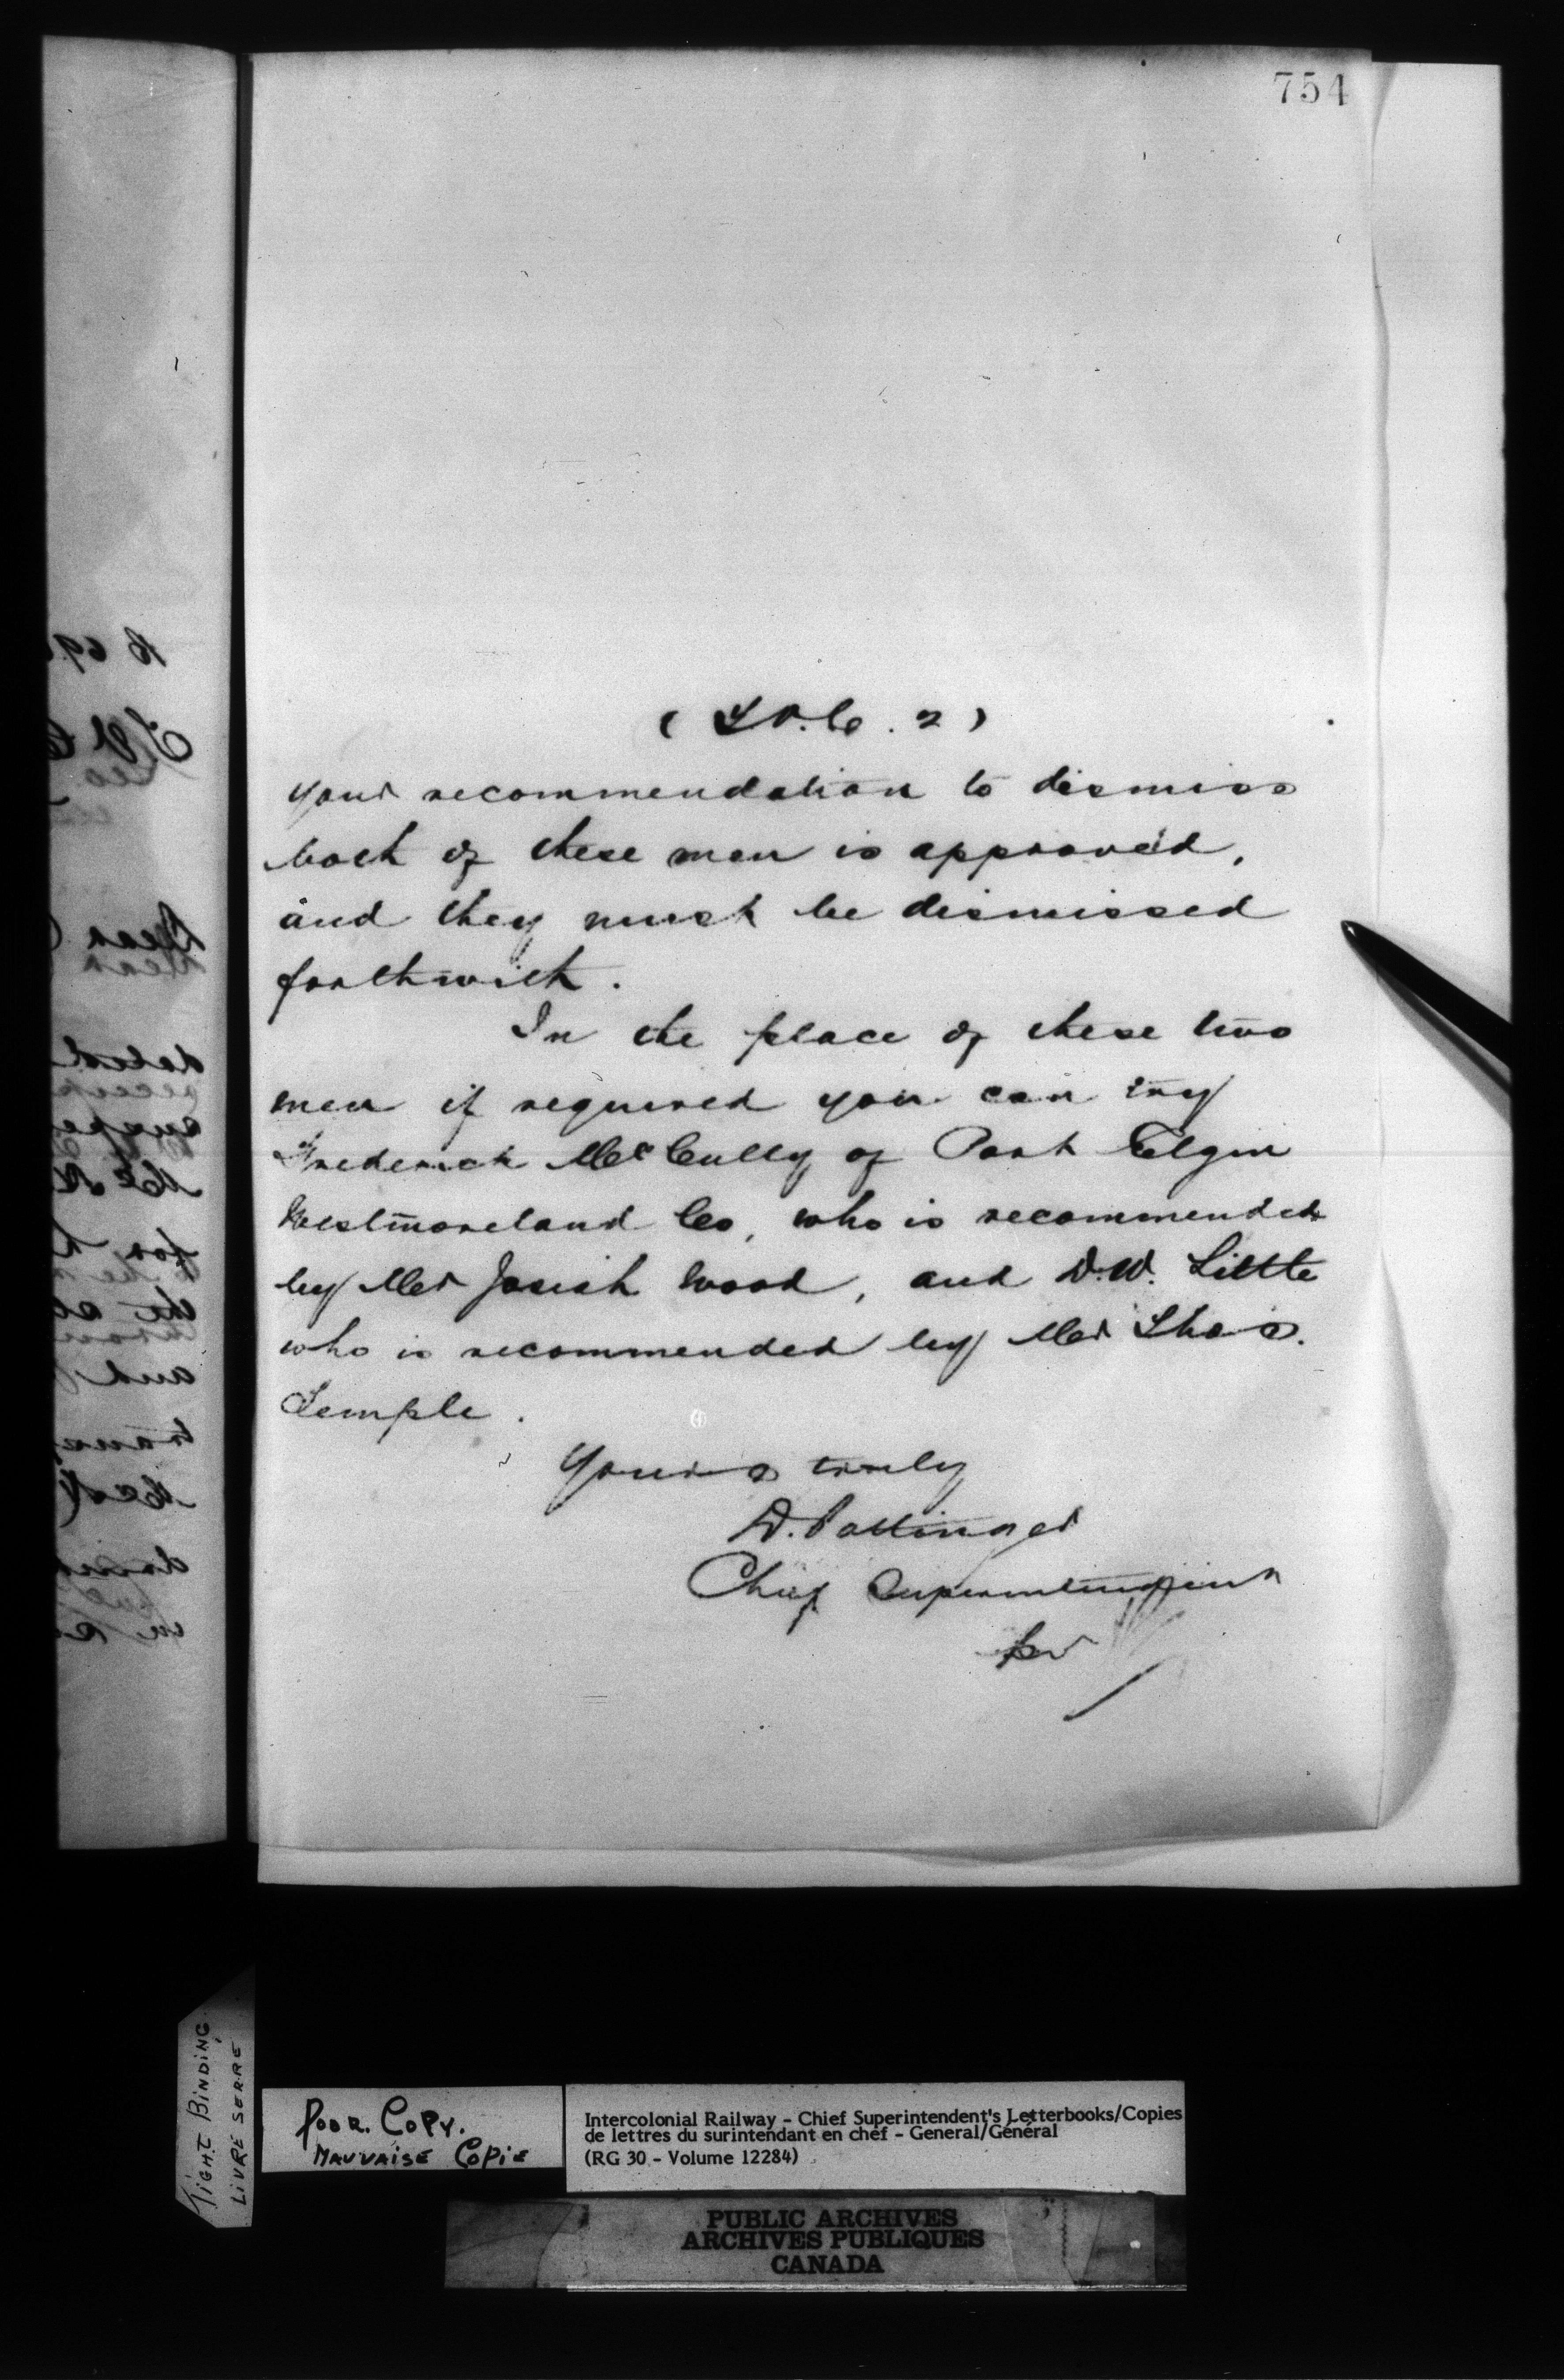 754
( J.J.C. 2 )
your recommendation to dismiss
both of these men is approved,
and they must be dismissed
forthwith.
In the place of these two
men if required you can try
Frederick McCully of Port Elgin
Westmoreland Co, who is recommended
by Mr Josiah Wood, and D.W. Little
who is recommended by Mr Thos.
Temple.
Yours truly
D. Pottinger
Chief Superintendent
TIGHT BINDING
LIVRE SERRE
POOR COPY.
MAUVAISE COPIE
Intercolonial Railway - Chief Superintendent's Letterbooks/Copies
de lettres du surintendant en chef - General/Général
(RG 30 - Volume 12284)
PUBLIC ARCHIVES
ARCHIVES PUBLIQUES
CANADA